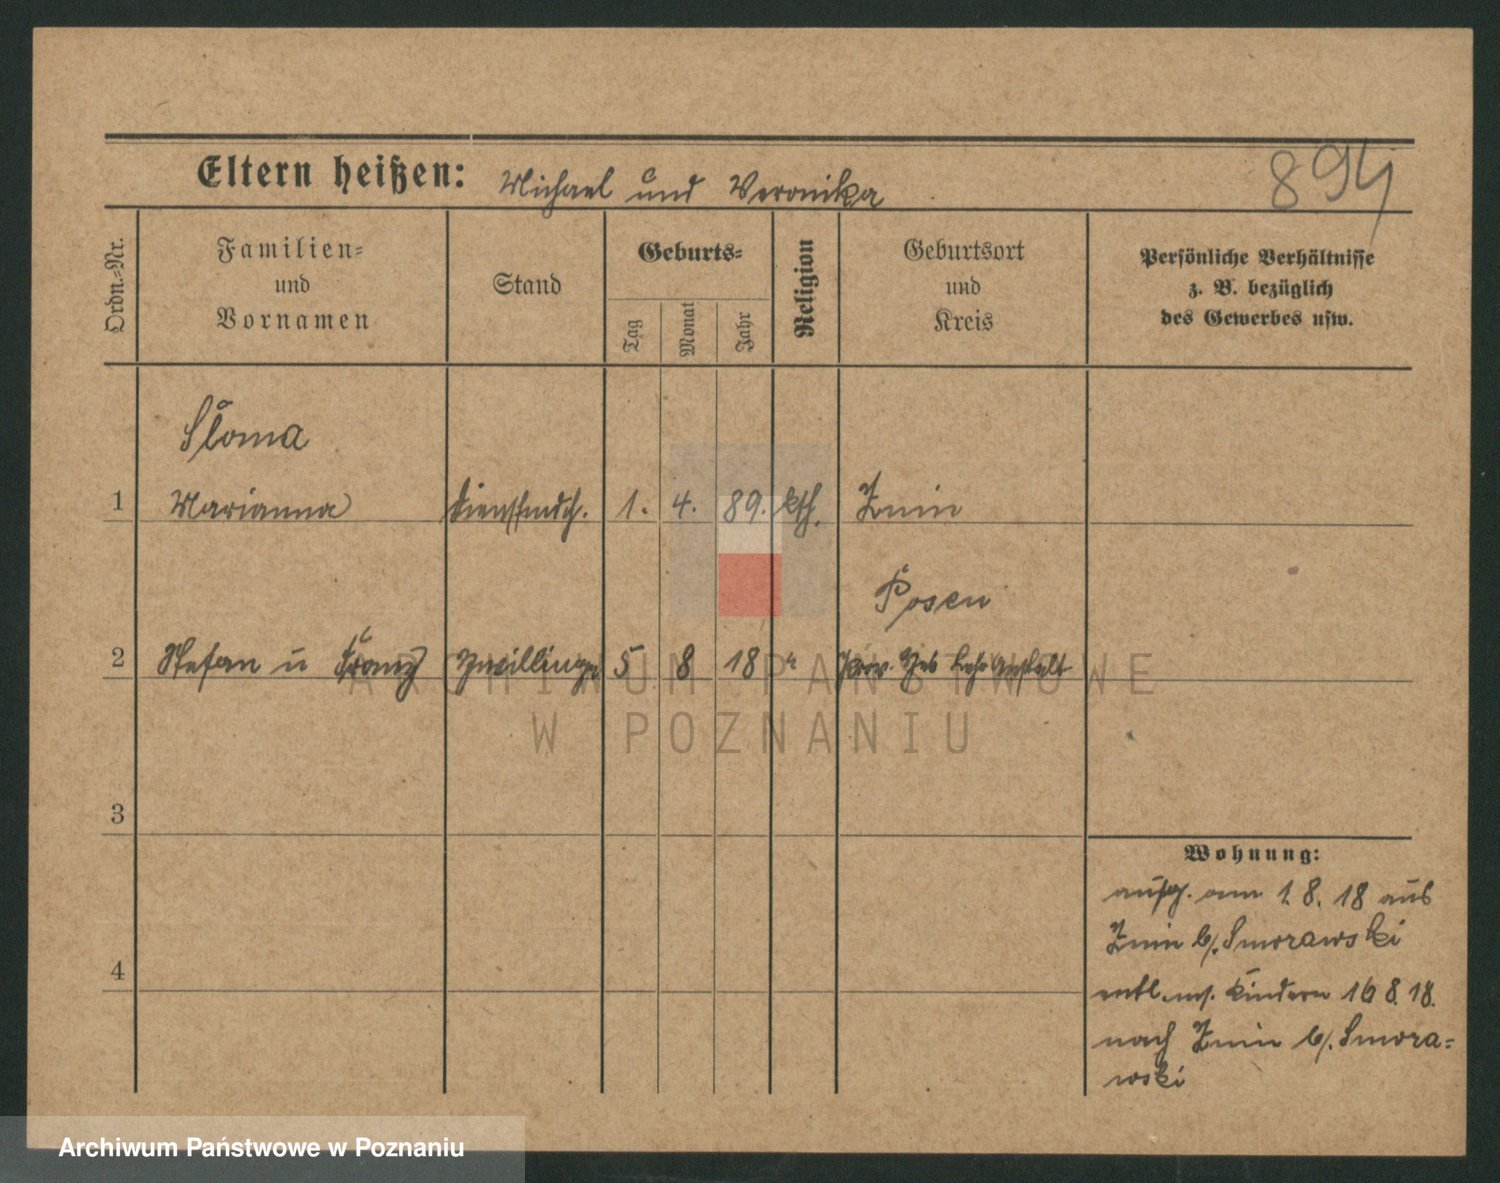 Eltern heißen: Michael und Veronika
894
Ordn.-Nr.
Familien-
und
Vornamen
Stand
Geburts-
Tag
Monat
Jahr
Religion
Geburtsort
und
Kreis
Persönliche Verhältnisse
z. B. bezüglich
des Gewerbes usw.
Sloma
1 Marianna Dienstmdch. 1. 4. 89. kth. Znin
Posen
2 Stefan u Franz Zwillinge 5 8 18 " Prov. Heb Lehr Anstalt
ARCHIWUM PAŃSTWOWE
W POZNANIU
3
4
Wohnung:
aufg. am 1. 8. 18 aus
Znin b/. Smorawski
entl. m. Kindern 16 8. 18.
nach Znin b/. Smora=
wski
Archiwum Państwowe w Poznaniu